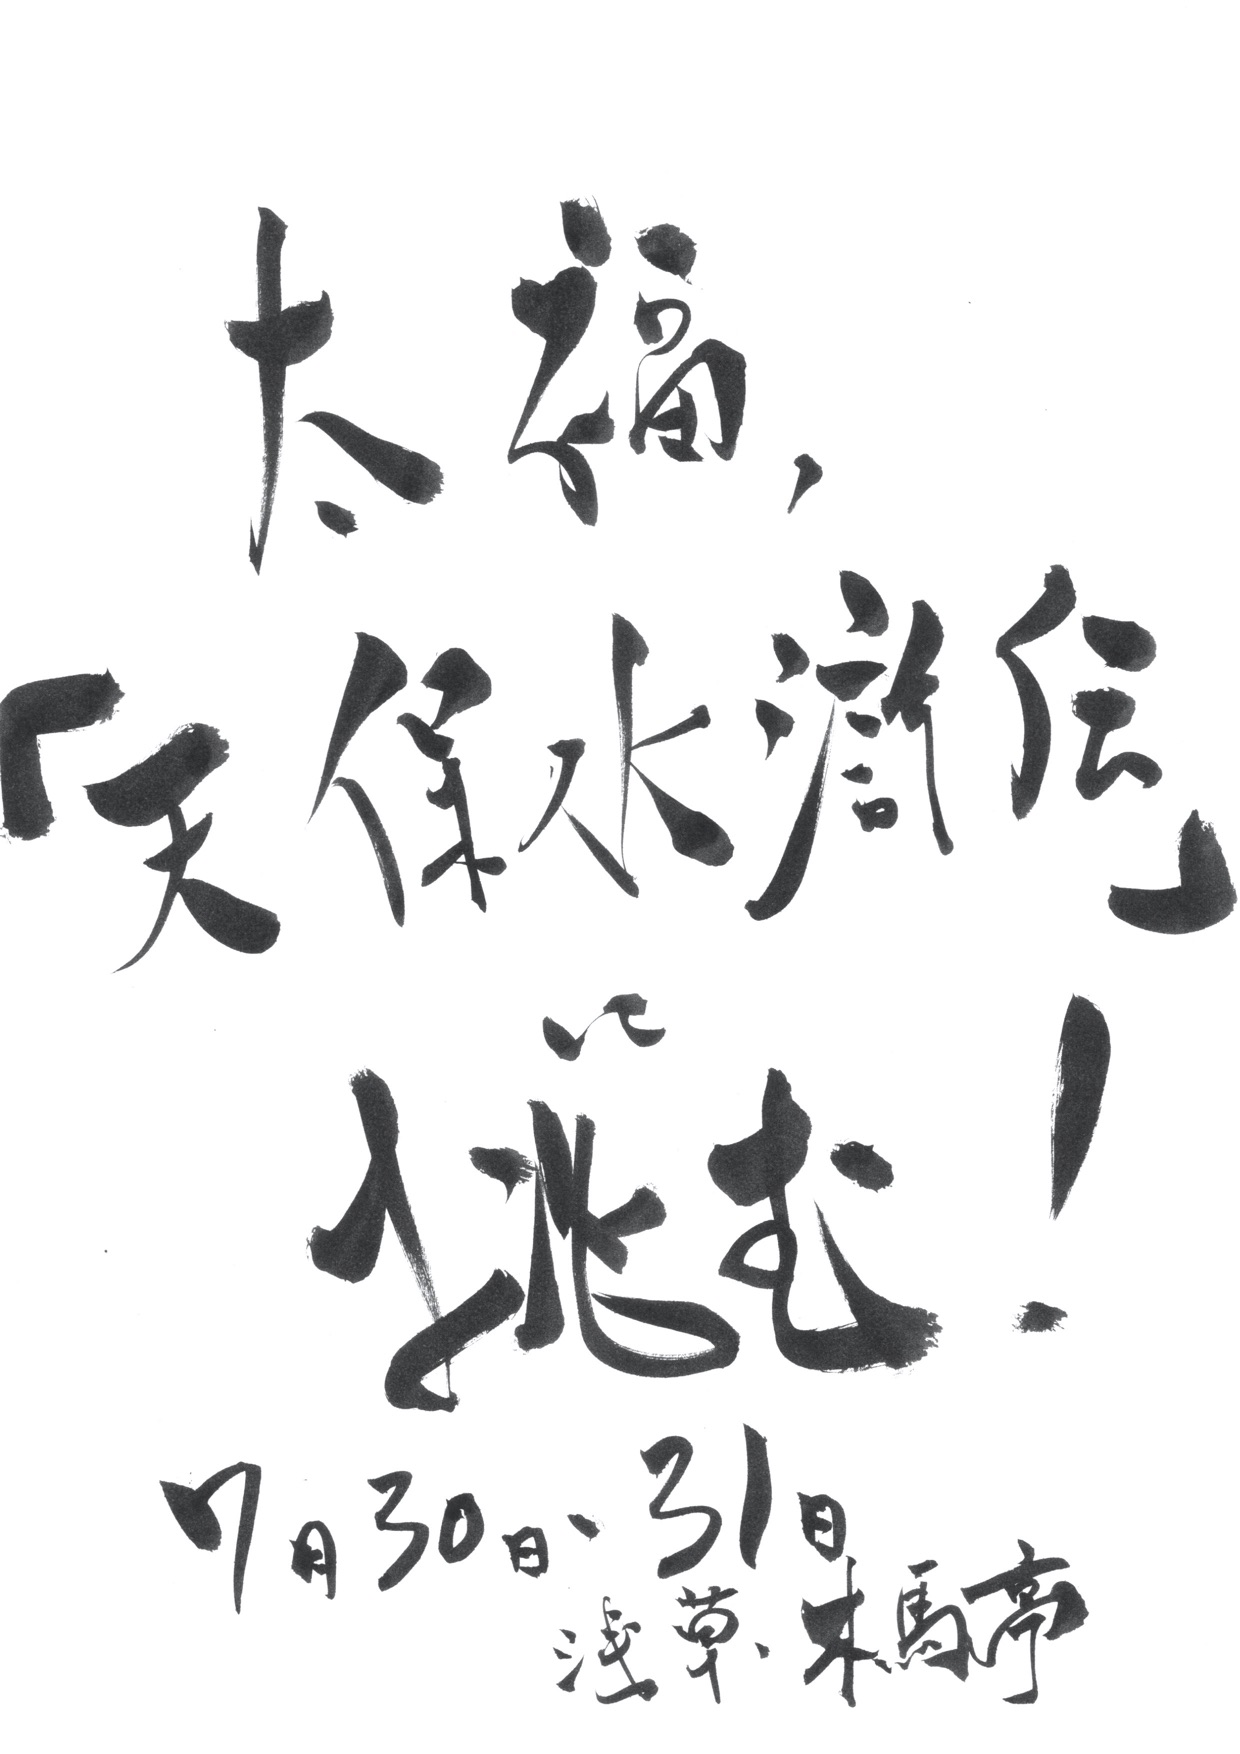 太福、
「天保水滸伝」
に
挑む！
7月30日、31日
浅草・木馬亭